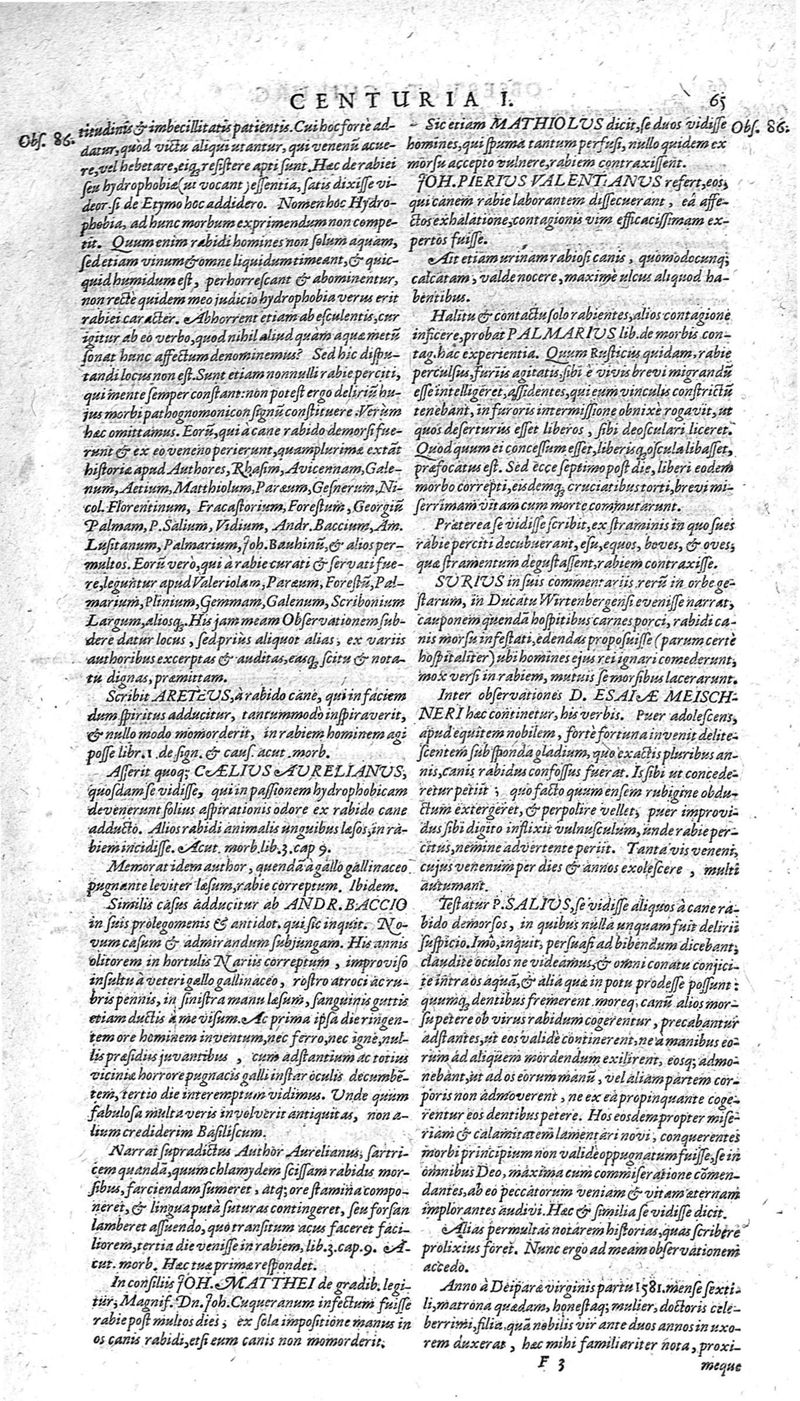 CENTURIA I.
65
Obs. 86.
titudinis & imbecillitatis patientis. Cui hoc fortè ad-
datur, quòd victu aliqui utantur, qui venenū acue-
re, vel hebetare, eiq; resistere apti sunt. Hæc de rabiei
seu hydrophobiæ (ut vocant) essentia, satis dixisse vi-
deor, si de Etymo hoc addidero. Nomen hoc Hydro-
phobia, ad hunc morbum exprimendum non compe-
tit. Quum enim rabidi homines non solum aquam,
sed etiam vinum & omne liquidum timeant, & quic-
quid humidum est, perhorrescant & abominentur,
non rectè quidem meo judicio hydrophobia verus erit
rabiei caracter. Abhorrent etiam ab esculentis, cur
igitur ab eo verbo, quod nihil aliud quàm aquæ metū
sonat hunc affectum denominemus? Sed hic dispu-
tandi locus non est. Sunt etiam nonnulli rabie perciti,
qui mente semper constant: non potest ergo deliriū hu-
jus morbi pathognomonicon signū constituere. Verùm
hæc omittamus. Eorū, qui à cane rabido demorsi fue-
runt & ex eo veneno perierunt, quamplurimæ extāt
historiæ apud Authores, Rhasim, Avicennam, Gale-
num, Aetium, Matthiolum, Paræum, Gesnerum, Ni-
col. Florentinum, Fracastorium, Forestum, Georgiū
Palmam, P. Salium, Vidium, Andr. Baccium, Am.
Lusitanum, Palmarium, Joh. Bauhinū, & alios per-
multos. Eorū verò, qui à rabie curati & servati fue-
re, leguntur apud Valeriolam, Paræum, Forestū, Pal-
marium, Plinium, Gemmam, Galenum, Scribonium
Largum, aliosq;. His jam meam Observationem sub-
dere datur locus, sed prius aliquot alias, ex variis
authoribus excerptas & auditas, easq; scitu & nota-
tu dignas, præmittam.
Scribit ARETEUS, à rabido cane, qui in faciem
dum spiritus adducitur, tantummodo inspiraverit,
& nullo modo momorderit, in rabiem hominem agi
posse libr. 1. de sign. & caus. acut. morb.
Asserit quoq; CÆLIUS AURELIANUS,
quosdam se vidisse, qui in passionem hydrophobicam
devenerunt solius aspirationis odore ex rabido cane
adducto. Alios rabidi animalis unguibus læsos, in ra-
biem incidisse. Acut. morb. lib. 3. cap 9.
Memorat idem author, quendā à gallo gallinaceo
pugnante leviter læsum, rabie correptum. Ibidem.
Similis casus adducitur ab ANDR. BACCIO
in suis prolegomenis & antidot. qui sic inquit. No-
vum casum & admirandum subjungam. His annis
olitorem in hortulis Nariis correptum, improviso
insultu à veteri gallo gallinaceo, rostro atroci ac ru-
bris pennis, in sinistra manu læsum, sanguinis guttis
etiam ductis à me visum. Ac prima ipsa die ringen-
tem ore hominem inventum, nec ferro, nec igne, nul-
lis præsidiis juvantibus, cum adstantium ac totius
viciniæ horrore pugnacis galli instar oculis decumbē-
tem, tertio die interemptum vidimus. Unde quum
fabulosa multa veris involverit antiquitas, non a-
lium crediderim Basiliscum.
Narrat supradictus Author Aurelianus, sartri-
cem quandā, quum chlamydem scissam rabidis mor-
sibus, farciendam sumeret, atq; ore stamina compo-
neret, & lingua putà suturas contingeret, seu forsan
lamberet assuendo, quo transitum acus faceret faci-
liorem, tertia die venisse in rabiem, lib. 3. cap. 9. A-
cut. morb. Hæc tuæ primæ respondet.
In consiliis JOH. MATTHEI de gradib. legi-
tur, Magnif. Dn. Joh. Cuqueranum infectum fuisse
rabie post multos dies, ex sola impositione manus in
os canis rabidi, etsi eum canis non momorderit.
Obs. 86.
Sic etiam MATHIOLUS dicit, se duos vidisse
homines, qui spumâ tantum perfusi, nullo quidem ex
morsu accepto vulnere, rabiem contraxissent.
JOH. PIERIUS VALENTIANUS refert, eos,
qui canem rabie laborantem dissecuerant, eâ affe-
ctos exhalatione, contagionis vim efficacissimam ex-
pertos fuisse.
Ait etiam urinam rabiosi canis, quomodocunq;
calcatam, valde nocere, maximè ulcus aliquod ha-
bentibus.
Halitu & contactu solo rabientes, alios contagione
inficere, probat PALMARIUS lib. de morbis con-
tag. hac experientia. Quum Rusticus quidam, rabie
perculsus, furiis agitatis, sibi è vivis brevi migrandū
esse intelligeret, assidentes, qui eum vinculis constrictū
tenebant, in furoris intermissione obnixe rogavit, ut
quos deserturus esset liberos, sibi deosculari liceret.
Quod quum ei concessum esset, liberisq; oscula libasset,
præfocatus est. Sed ecce septimo post die, liberi eodem
morbo correpti, eisdemq; cruciatibus torti, brevi mi-
serrimam vitam cum morte commutarunt.
Præterea se vidisse scribit, ex straminis in quo sues
rabie perciti decubuerant, esu, equos, boves, & oves,
quæ stramentum degustassent, rabiem contraxisse.
SURIUS in suis commentariis rerū in orbe ge-
starum, in Ducatu Wirtenbergensi evenisse narrat,
cauponem quendā hospitibus carnes porci, rabidi ca-
nis morsu infestati, edendas proposuisse (parum certè
hospitaliter) ubi homines ejus rei ignari comederunt,
mox versi in rabiem, mutuis se morsibus lacerarunt.
Inter observationes D. ESAIÆ MEISCH-
NERI hæc continetur, his verbis. Puer adolescens,
apud equitem nobilem, fortè fortuna invenit delite-
scentem sub sponda gladium, quo exactis pluribus an-
nis, canis rabidus confossus fuerat. Is sibi ut concede-
retur petiit; quo facto quum ensem rubigine obdu-
ctum extergeret, & perpolire vellet, puer improvi-
dus sibi digito inflixit vulnusculum, unde rabie per-
citus, nemine advertente periit. Tanta vis veneni,
cujus venenum per dies & annos exolescere, multi
autumant.
Testatur P. SALIUS, se vidisse aliquos à cane ra-
bido demorsos, in quibus nulla unquam fuit delirii
suspicio. Imò, inquit, persuasi ad bibendum dicebant,
claudite oculos ne videamus, & omni conatu conjici-
te intra os aquā, & alia quæ in potu prodesse possunt:
quumq; dentibus fremerent, moreq; canū alios mor-
su petere ob virus rabidum cogerentur, precabantur
adstantes, ut eos validè continerent, ne à manibus eo-
rum ad aliquem mordendum exilirent, eosq; admo-
nebant, ut ad os eorum manū, vel aliam partem cor-
poris non admoverent, ne ex ea propinquante coge-
rentur eos dentibus petere. Hos eosdem propter mise-
riam & calamitatem lamentari novi, conquerentes
morbi principium non validè oppugnatum fuisse, se in
omnibus Deo, maxima cum commiseratione cōmen-
dantes, ab eo peccatorum veniam & vitam æternam
implorantes audivi. Hæc & similia se vidisse dicit.
Alias permultas notarem historias, quas scribere
prolixius foret. Nunc ergo ad meam observationem
accedo.
Anno à Deiparæ virginis partu 1581. mense sexti-
li, matrona quædam, honestaq; mulier, doctoris cele-
berrimi, filia, quā nobilis vir ante duos annos in uxo-
rem duxerat, hæc mihi familiariter nota, proxi-
F 3
meque